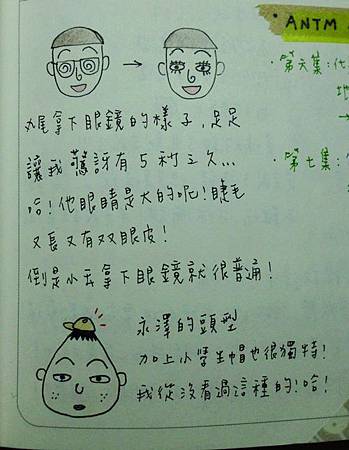 ANTM
・第六集:代
地
→
・第七集:
丸尾拿下眼鏡的樣子,足足
讓我驚訝有5秒之久...
哈!他眼睛是大的呢!睫毛
又長又有双眼皮!
倒是小玉拿下眼鏡就很普通!
永澤的頭型
加上小學生帽也很獨特!
我從沒看過這種的!哈!